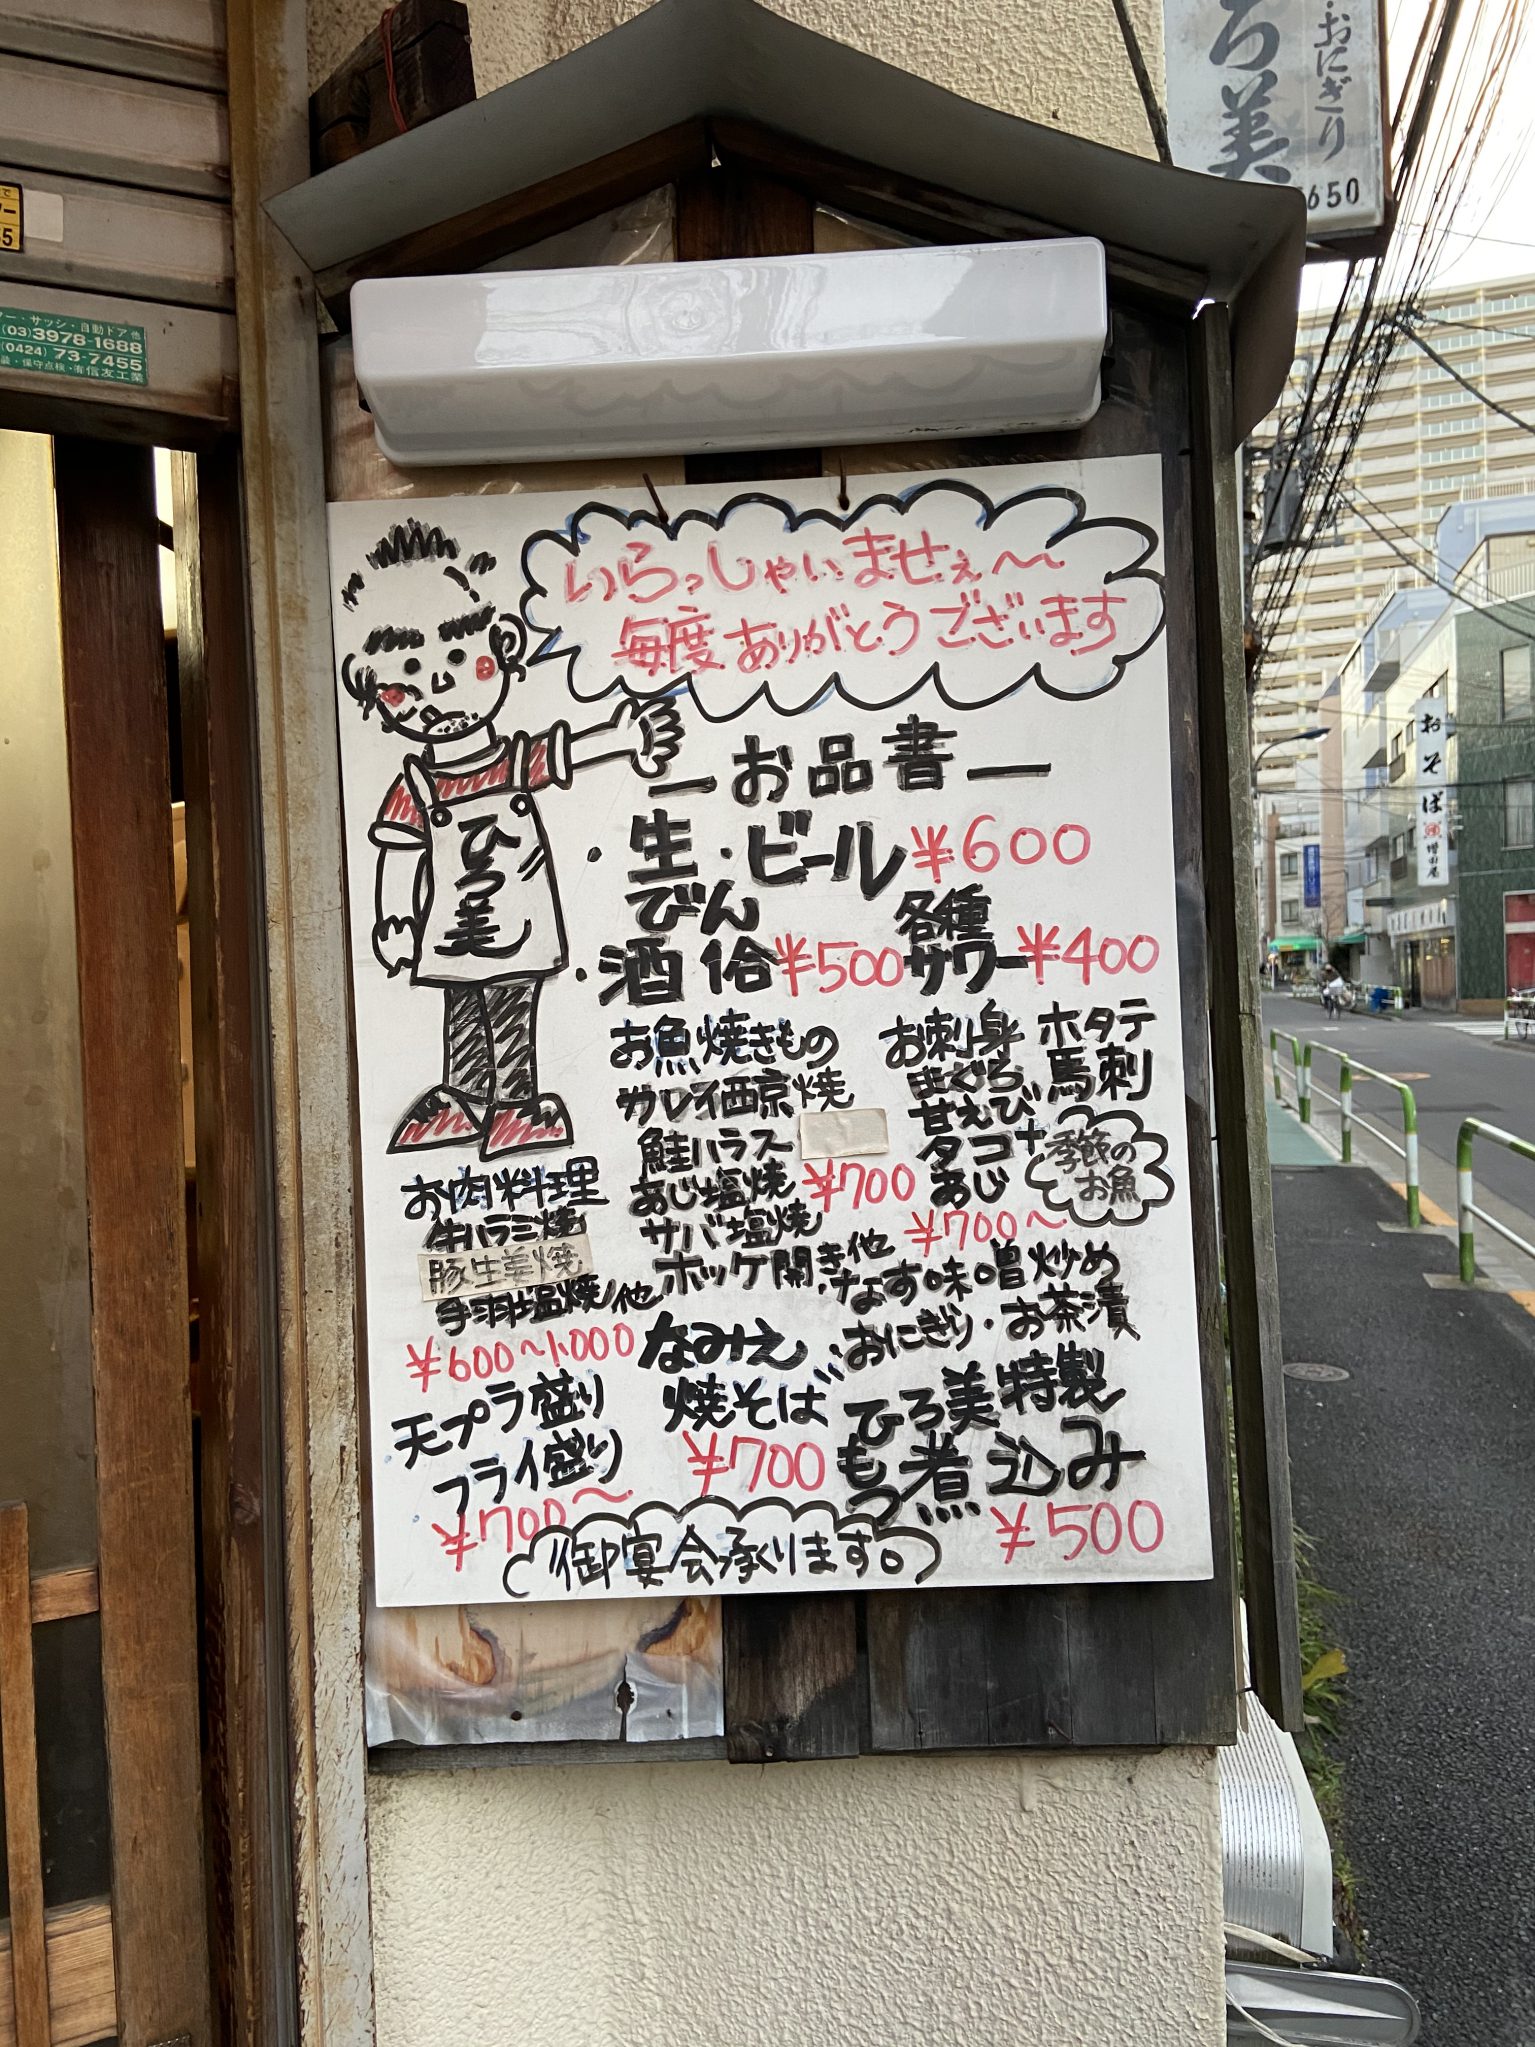 おにぎり
ろ美
650
ー・サッシ・自動ドア他
(03)3978-1688
(0424)73-7455
保守点検・㈲信友工業
いらっしゃいませぇ〜
毎度ありがとうございます
ひろ美
ーお品書ー
・生・ビール ¥600
びん
・酒 ¥500
各種
サワー ¥400
お魚焼きもの
カレイ西京焼
鮭ハラス
あじ塩焼
サバ塩焼
ホッケ開き他
¥700
お刺身
まぐろ
甘えび
タコ
あじ
ホタテ
馬刺
+
季節の
お魚
¥700〜
お肉料理
牛ハラミ焼
豚生姜焼
手羽塩焼他
¥600〜1,000
なす味噌炒め
おにぎり・お茶漬
なみえ
焼そば
¥700
天プラ盛り
フライ盛り
¥700〜
ひろ美特製
もつ煮込み
¥500
御宴会承くります。
おそば
増田屋